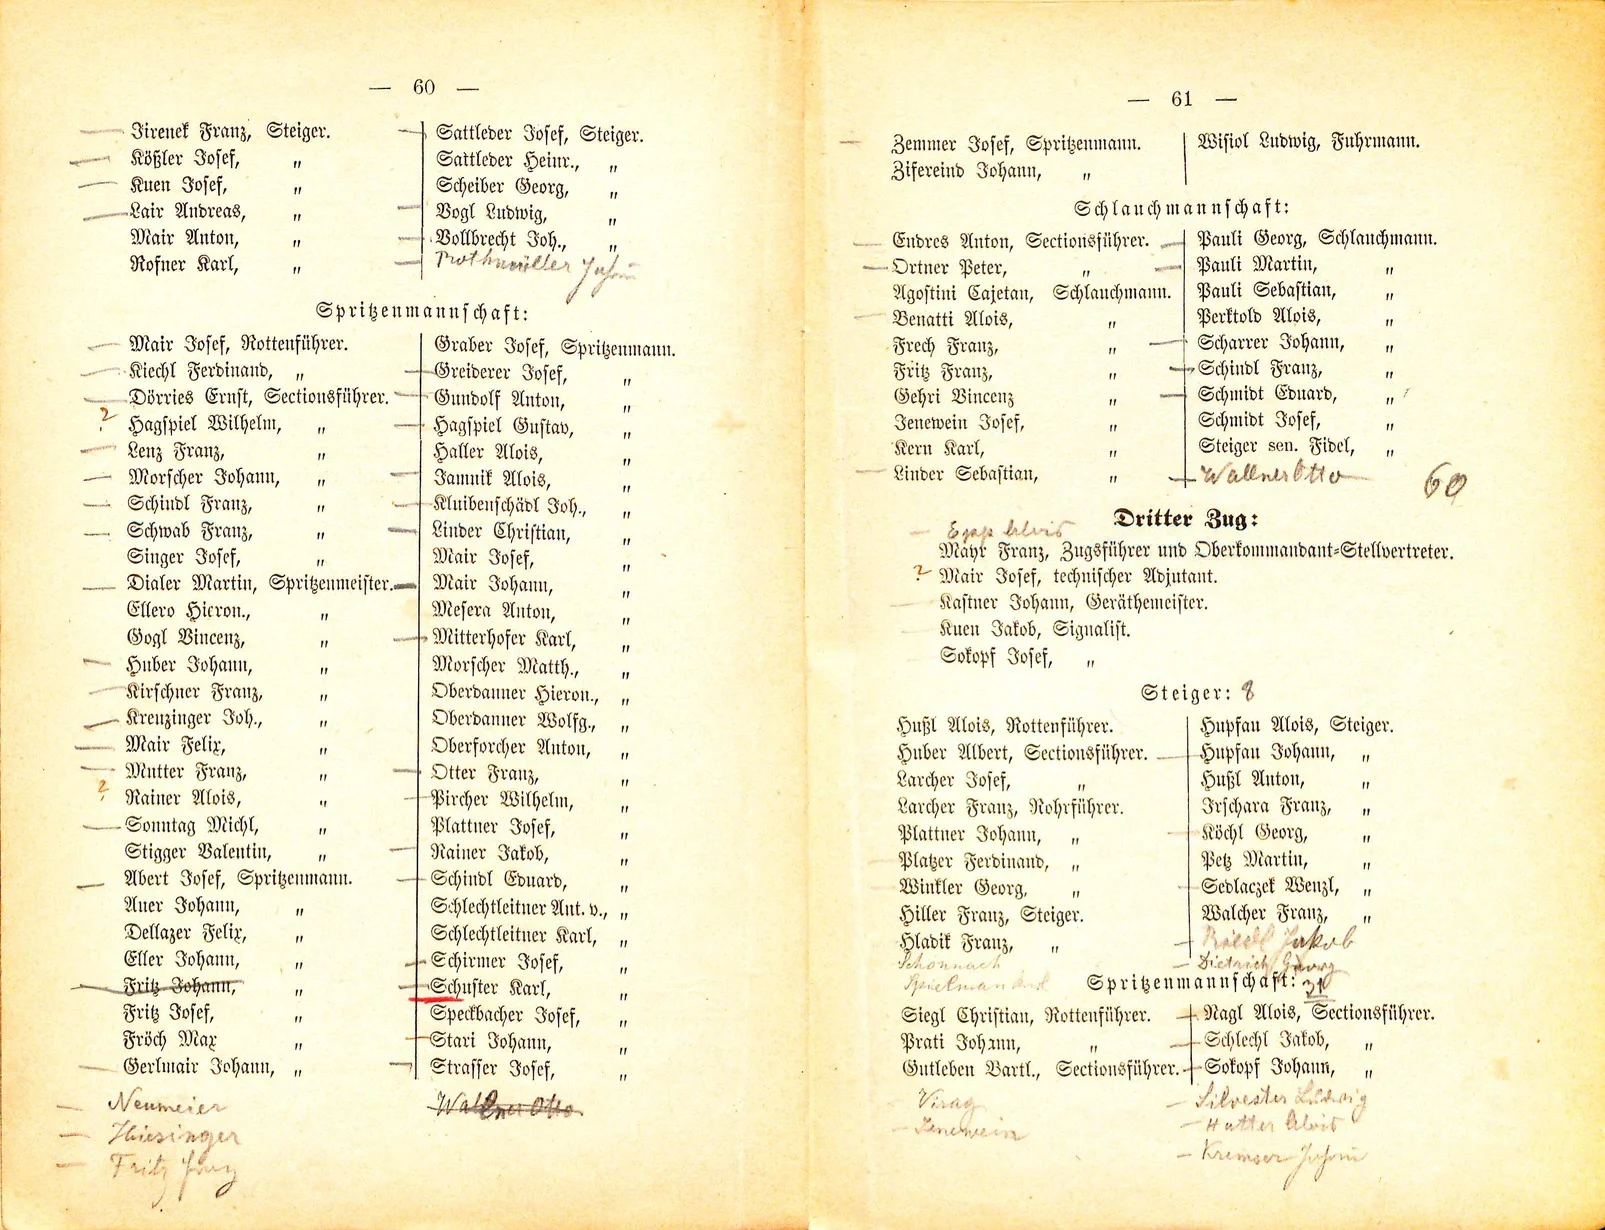 — 60 —
Jirenek Franz, Steiger.
Kößler Josef, „
Kuen Josef, „
Lair Andreas, „
Mair Anton, „
Rofner Karl, „
Sattleder Josef, Steiger.
Sattleder Heinr., „
Scheiber Georg, „
Vogl Ludwig, „
Vollbrecht Joh., „
Rothmüller
Spritzenmannschaft:
Mair Josef, Rottenführer.
Kiechl Ferdinand, „
Dörries Ernst, Sectionsführer.
? Hagspiel Wilhelm, „
Lenz Franz, „
Morscher Johann, „
Schindl Franz, „
Schwab Franz, „
Singer Josef, „
Dialer Martin, Spritzenmeister.
Ellero Hieron., „
Gogl Vincenz, „
Huber Johann, „
Kirschner Franz, „
Kreuzinger Joh., „
Mair Felix, „
Mutter Franz, „
? Rainer Alois, „
Sonntag Michl, „
Stigger Valentin, „
Abert Josef, Spritzenmann.
Auer Johann, „
Dellazer Felix, „
Eller Johann, „
Fritz Johann, „
Fritz Josef, „
Fröch Max „
Gerlmair Johann, „
Neumeier
Hiesinger
Fritz
Graber Josef, Spritzenmann.
Greiderer Josef, „
Gundolf Anton, „
Hagspiel Gustav, „
Haller Alois, „
Jamnik Alois, „
Kluibenschädl Joh., „
Linder Christian, „
Mair Josef, „
Mair Johann, „
Mesera Anton, „
Mitterhofer Karl, „
Morscher Matth., „
Oberdanner Hieron., „
Oberdanner Wolfg., „
Oberforcher Anton, „
Otter Franz, „
Pircher Wilhelm, „
Plattner Josef, „
Rainer Jakob, „
Schindl Eduard, „
Schlechtleitner Ant. v., „
Schlechtleitner Karl, „
Schirmer Josef, „
Schuster Karl, „
Speckbacher Josef, „
Stari Johann, „
Strasser Josef, „
Wallner Otto
— 61 —
Zemmer Josef, Spritzenmann.
Zifereind Johann, „
Wisiol Ludwig, Fuhrmann.
Schlauchmannschaft:
Endres Anton, Sectionsführer.
Ortner Peter, „
Agostini Cajetan, Schlauchmann.
Benatti Alois, „
Frech Franz, „
Fritz Franz, „
Gehri Vincenz „
Jenewein Josef, „
Kern Karl, „
Linder Sebastian, „
Pauli Georg, Schlauchmann.
Pauli Martin, „
Pauli Sebastian, „
Perktold Alois, „
Scharrer Johann, „
Schindl Franz, „
Schmidt Eduard, „
Schmidt Josef, „
Steiger sen. Fidel, „
Wallner Otto
60
Dritter Zug:
Epp Alois
Mayr Franz, Zugsführer und Oberkommandant-Stellvertreter.
? Mair Josef, technischer Adjutant.
Kastner Johann, Geräthemeister.
Kuen Jakob, Signalist.
Sokopf Josef, „
Steiger: 8
Hußl Alois, Rottenführer.
Huber Albert, Sectionsführer.
Larcher Josef, „
Larcher Franz, Rohrführer.
Plattner Johann, „
Platzer Ferdinand, „
Winkler Georg, „
Hiller Franz, Steiger.
Hladik Franz, „
Schönnach
Spielman
Hupfau Alois, Steiger.
Hupfau Johann, „
Hußl Anton, „
Irschara Franz, „
Köchl Georg, „
Petz Martin, „
Sedlaczek Wenzl, „
Walcher Franz, „
Riedl Jakob
Dietrich Georg
Spritzenmannschaft: 31
Siegl Christian, Rottenführer.
Prati Johann, „
Gutleben Bartl., Sectionsführer.
Virag
Jenewein
Nagl Alois, Sectionsführer.
Schlechl Jakob, „
Sokopf Johann, „
Silvester Ludwig
Hutter Alois
Kremser Johann